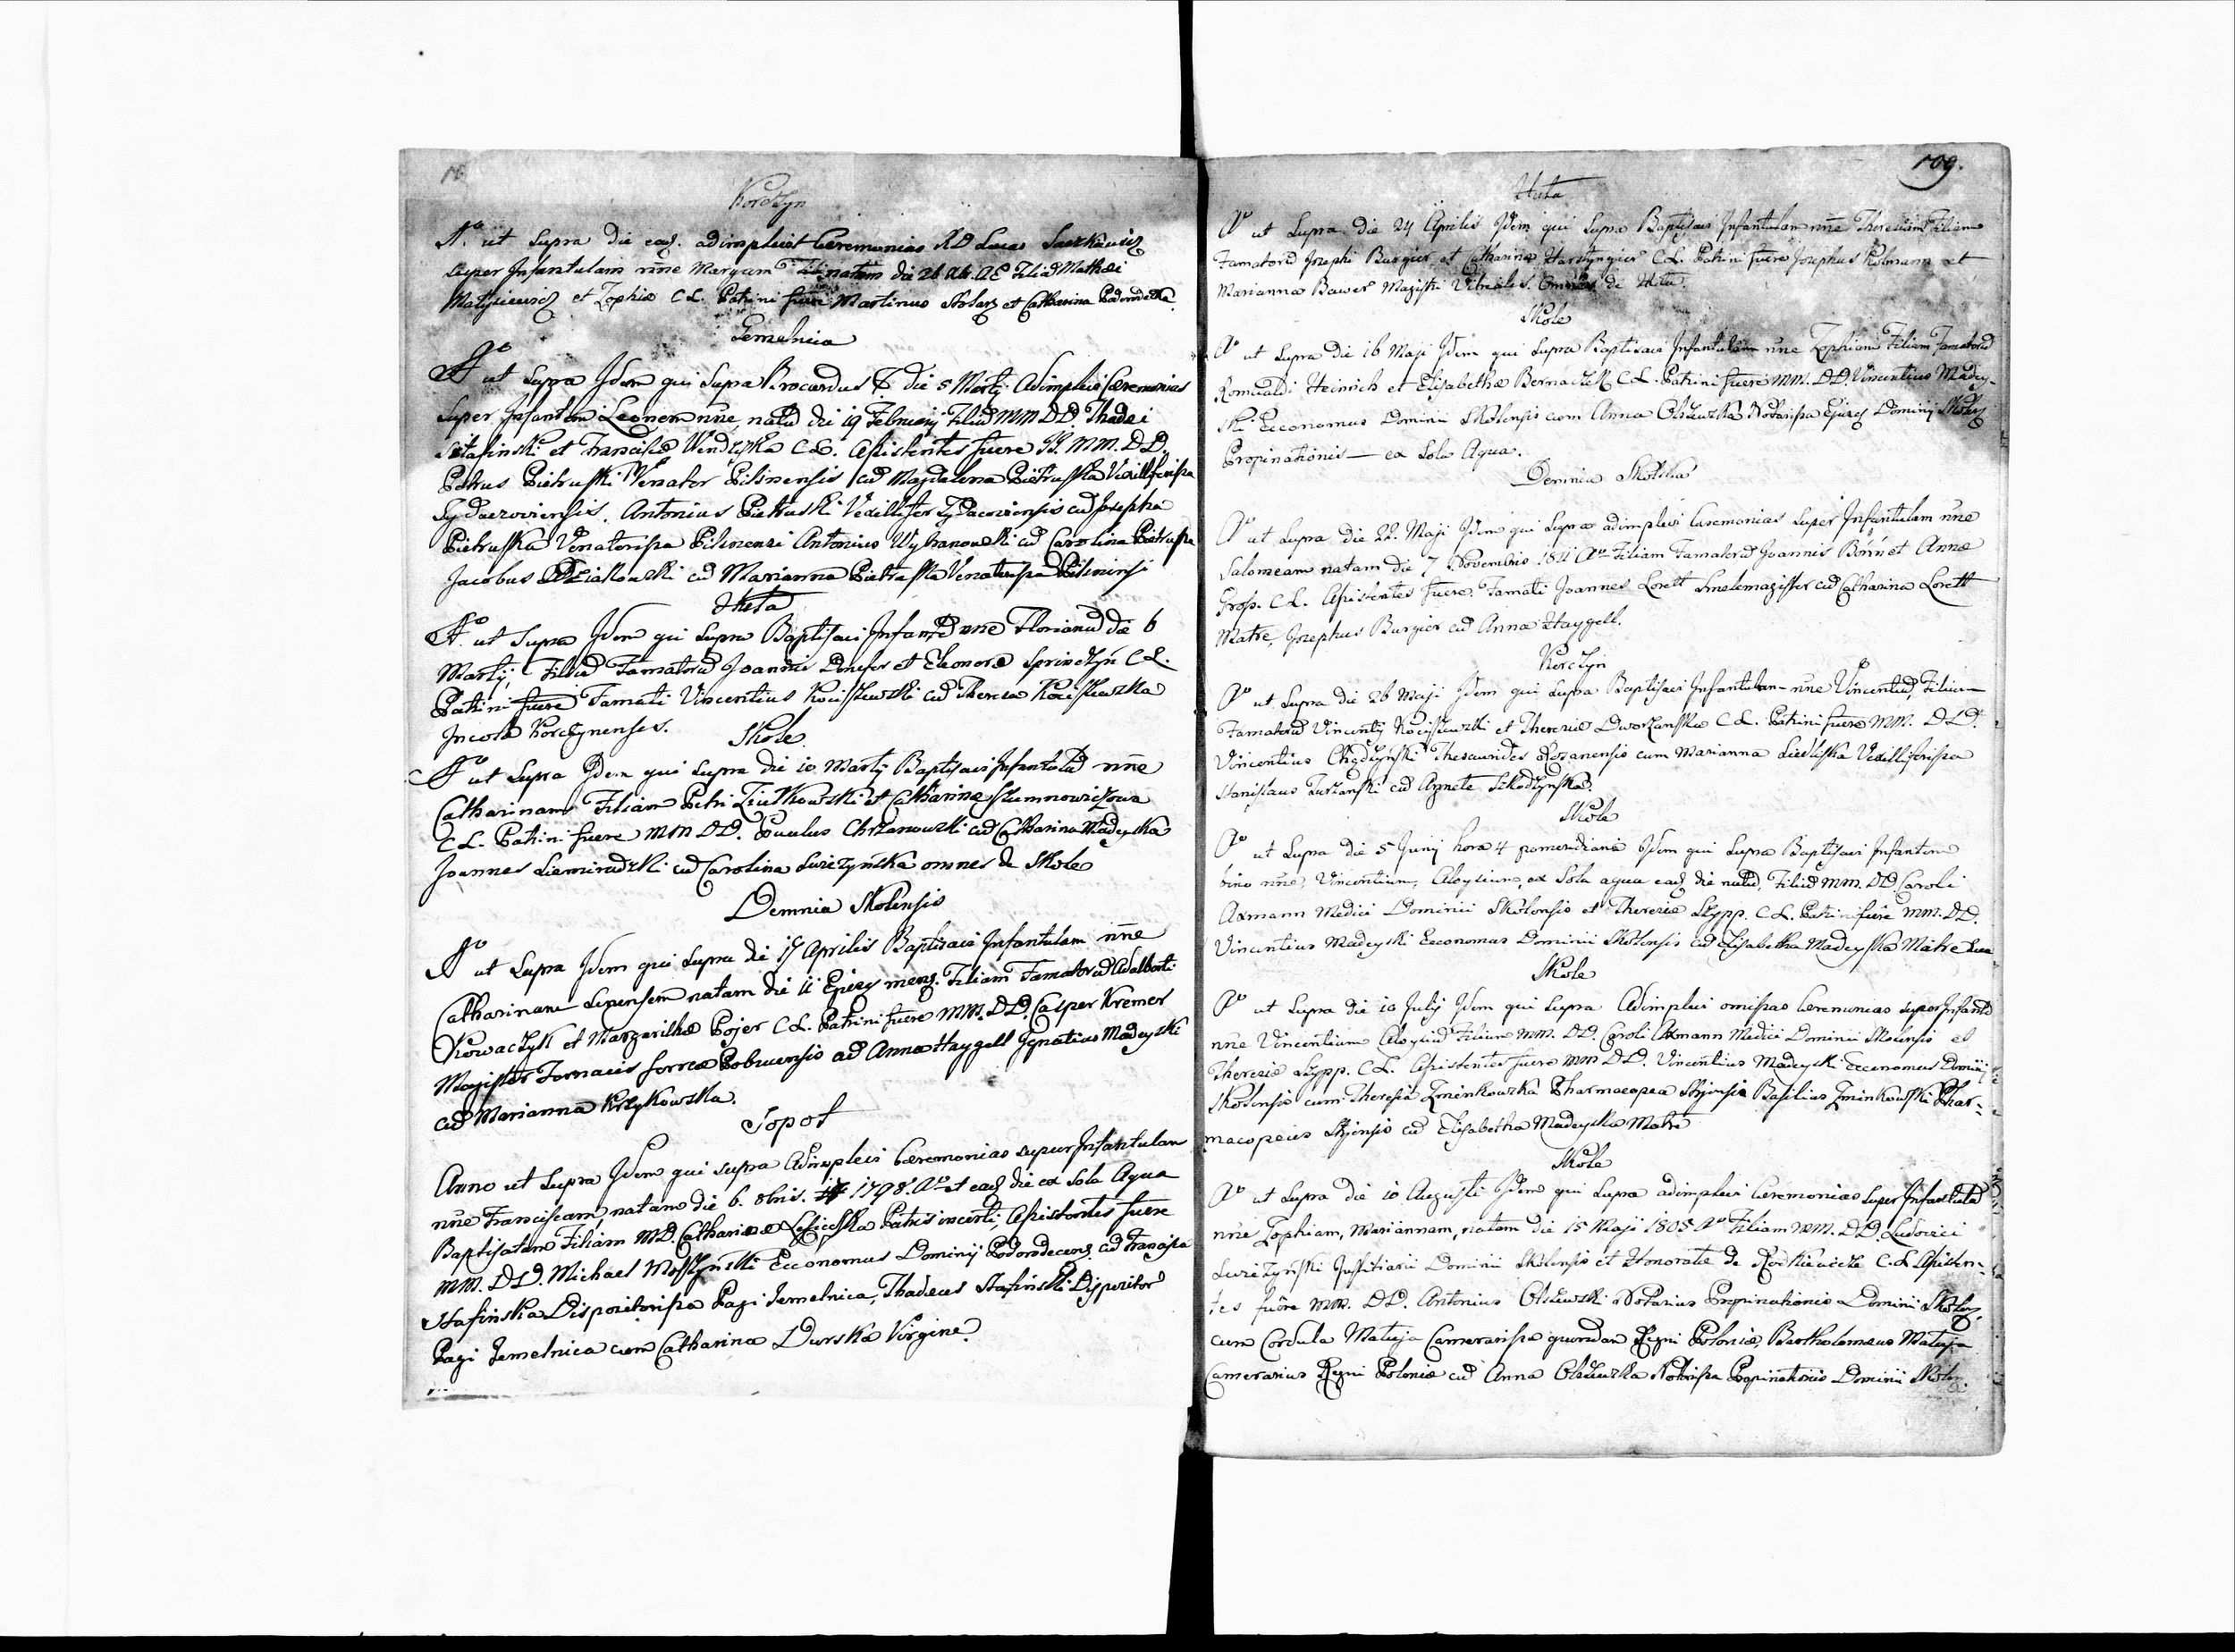 Korczyn
Aº. ut Supra die ead. adimplevit Ceremonias RD Lucas
super Infantulam nñe Margam natam die 26 Filiã Mathei
et Zophiæ C.L. Patrini fuere Martinus Stolarz et Catharina
Jemelnica
Aº ut Supra Idem qui supra Brocardus die 5 Martij Adimplevi Ceremonias
super Infantem Leonem nñe, natũ die 19 Februarij Filiũ MM DD. Thadei
Stafinski et Franciscæ C.L. Assistentes fuere MM. DD.
Petrus Pietruski Venator Pilsnensis cũ Magdalena Pietruska Vexillifirissa
Zydaczoviensis. Antonius Pietruski Vexillifer Zydacoviensis cũ Josepha
Pietruska Venatorissa Pilsnensi Antonius Wybranowski cũ Carolina Pietruska
Jacobus cũ Marianna Pietruska Venatorissa Pilsnensi
Huta
Aº. ut Supra Idem qui Supra Baptisavi Infantẽ nñe Florianũ die 6
Martij, Filiũ Famatorũ Joannis et Eleonoræ C.L.
Patrini fuere Famati Vincentius cũ Theresa
Incolæ Korczynenses.
Skole
Aº ut Supra Idem qui supra die 10 Martij Baptisavi Infantulã nñe
Catharinam Filiam Petri Ziutkowski et Catharinæ
C.L. Patrini fuere MM DD. Paulus Chrzanowski cũ Catharina Madeyska
Joannes Siemiradzki cũ Carolina Swiezyńska omnes de Skole
Demnia Skolensis
Aº ut Supra Idem qui supra die 17 Aprilis Baptisavi Infantulam nñe
Catharinam natam die 11 Ejusq mens. Filiam Famatorũ Adalberti
Kowaczyk et Margarithæ Bojer C.L. Patrini fuere MM. DD. Casper Kremer
Magister Fornacis ferreæ cũ Anna Haygell Ignatius Madeyski
cũ Marianna Krzykowska.
Sopot
Anno ut Supra Idem qui supra Adimplevi Ceremonias super Infantulam
nñe Franciscam, natam die 6. 8bris. 1798. Aº et ead die ex Sola Aqua
Baptisatam Filiam MD. Catharinæ Patris incerti, Assistentes fuere
MM. DD. Michael Economus Dominij Podorodecens. cũ Francisca
Stafinska Dispozitorissa Pagi Jemelnica, Thadeus Stafinski Dispozitor
Pagi Jemelnica cum Catharina Durska Virgine.
109.
Huta
Aº ut Supra die 24 Aprilis Idem qui Supra Baptisavi Infantulam nñe Theresiam Filiam
Famatorũ Josephi Burgier et Catharinæ C.L. Patrini fuere Josephus et
Marianna Bawer Magistri Vitriales. Omnes de Huta.
Skole
Aº ut Supra die 16 Maji Idem qui Supra Baptisavi Infantulam nñe Zophiam Filiam Famatorũ
Romualdi Heinrich et Elisabethæ C.L. Patrini fuere MM. DD. Vincentius Madey-
ski Economus Dominii Skolensis cum Anna Olszewska Notarissa Ejusq Dominij Skolen
Propinationis — ex Sola Aqua.
Demnia Skolska
Aº ut Supra die 22. Maji Idem qui Supra adimplevi Ceremonias super Infantulam nñe
Salomeam natam die 7 Novembris 1811 Aº Filiam Famatorũ Joannis Bonn et Annæ
Gross. C.L. Assistentes fuere Famati Joannes Lorett cũ Catharina Lorett
Matre, Josephus Burgier cũ Anna Haygell.
Korczyn
Aº ut Supra die 26 Maji Idem qui Supra Baptisavi Infantulum nñe Vincentiũ, Filium
Famatorũ Vincentij et Theresiæ Dworzanska C.L. Patrini fuere MM. DD.
Vincentius Thesaurides Rozanensis cum Marianna Vexillifirissa
Stanislaus cũ Agnete
Skole
Aº ut Supra die 5 Junij hora 4 pomeridiana Idem qui Supra Baptisavi Infantem
bino nñe, Vincentium, Aloysium, ex Sola aqua ead die natũ, Filiũ MM. DD. Caroli
Axmann Medici Dominii Skolensis et Theresiæ C.L. Patrini fuere MM. DD.
Vincentius Madeyski Economus Dominii Skolensis cũ Elisabetha Madeyska Matre sua
Skole
Aº ut Supra die 10 Julij Idem qui supra Adimplevi omissas Ceremonias super Infantẽ
nñe Vincentium Aloysiũ Filium MM. DD. Caroli Axmann Medici Dominii Skolensis et
Theresiæ C.L. Assistentes fuere MM DD. Vincentius Madeyski Economus Dominij
Skolensis cum Theresia Zminkowska Pharmacopea Stryensis Basilius Zminkowski Phar-
macopeus Stryensis cũ Elisabetha Madeyska Matre
Skole
Aº ut Supra die 10 Augusti Idem qui Supra adimplevi Ceremonias super Infantulã
nñe Zophiam, Mariannam, natam die 15 Maji 1805 Aº Filiam MM. DD. Ludovici
Swiezyński Justitiarii Dominii Skolensis et Honoratæ de C.L. Assisten-
tes fuere MM. DD. Antonius Olszewski Notarius Propinationis Dominii Skolen.
cum Cordula Matuja Camerarissa quondam Regni Poloniæ, Bartholomæus Matuja
Camerarius Regni Poloniæ cũ Anna Olszewska Notarissa Propinationis Dominii Skolen.